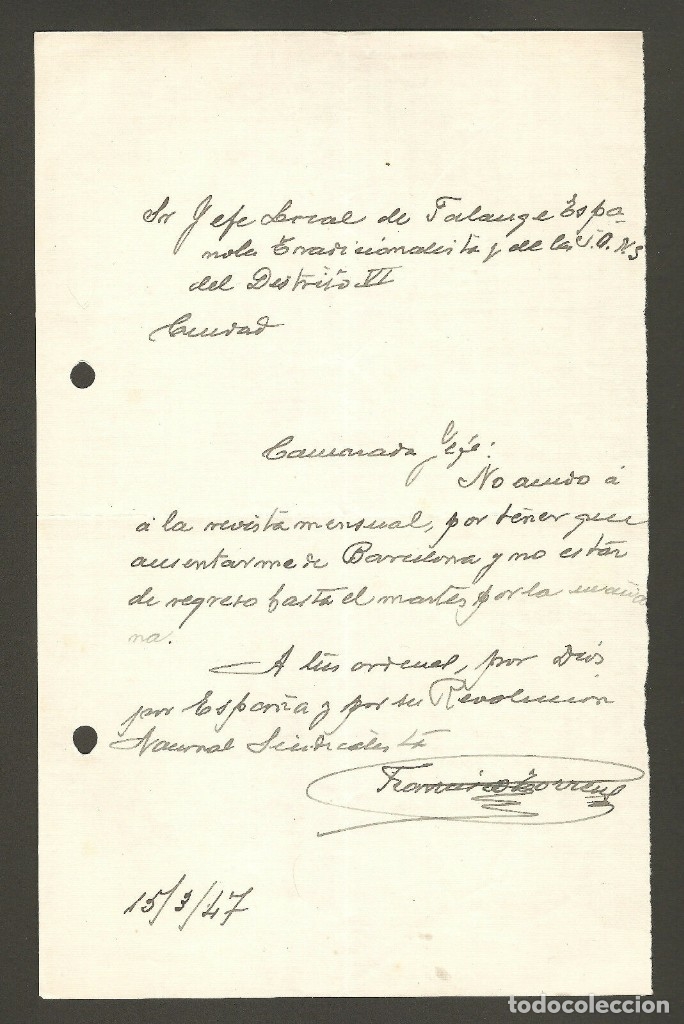 Sr Jefe Local de Falange Espa-
ñola Tradicionalista y de las J.O.N.S
del Distrito VI
Ciudad
Camarada Jefe:
No acudo á
á la revista mensual, por tener que
ausentarme de Barcelona y no estár
de regreso hasta el martes por la maña
na.
A tus ordenes, por Dios
por España y por su Revolución
Nacional Sindicalista
Francisco
15/3/47
todocoleccion